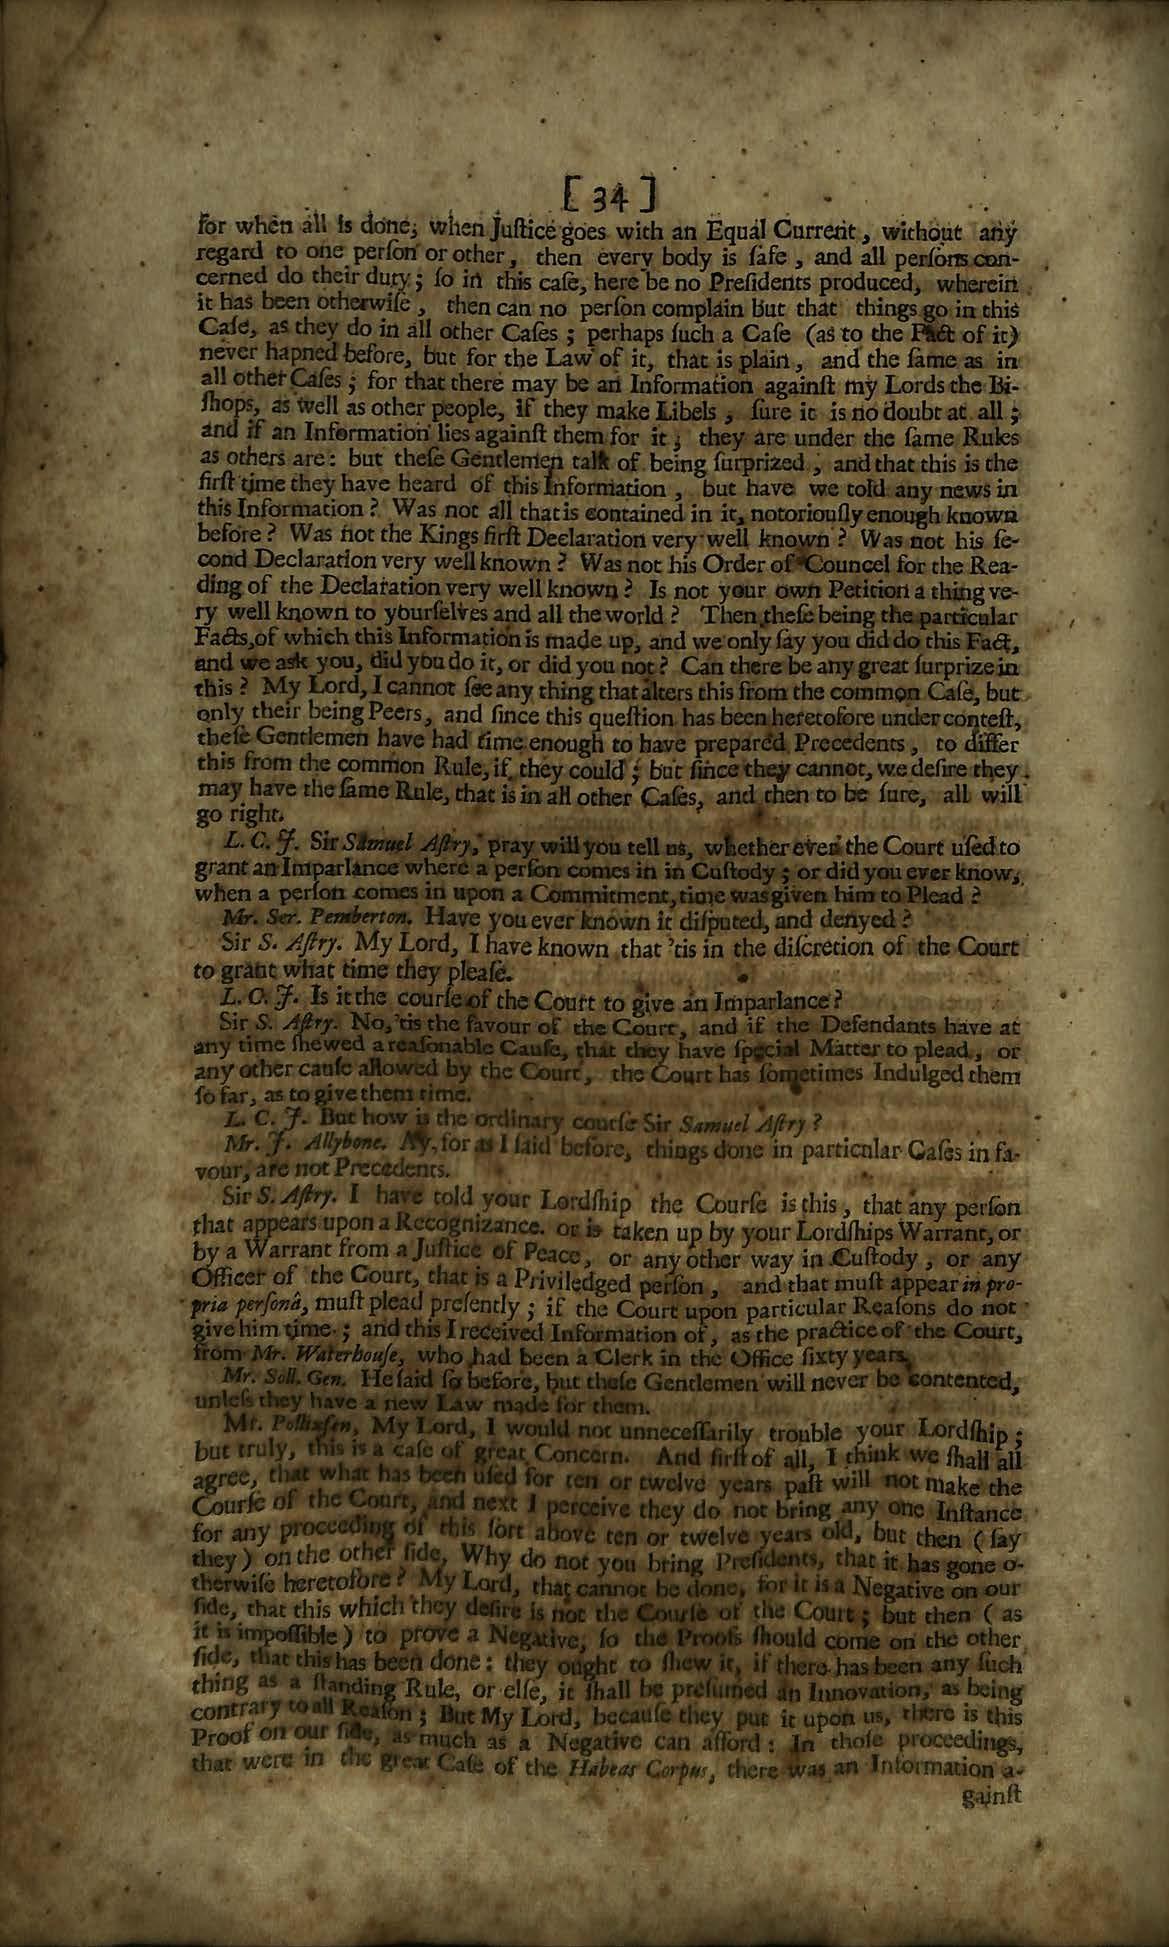 [ 34 ]
for when all is done, when Juſtice goes with an Equal Current, without any
regard to one perſon or other, then every body is ſafe, and all perſons con-
cerned do their duty; ſo in this caſe, here be no Preſidents produced, wherein
it has been otherwiſe, then can no perſon complain but that things go in this
Caſe, as they do in all other Caſes; perhaps ſuch a Caſe (as to the Fact of it)
never hapned before, but for the Law of it, that is plain, and the ſame as in
all other Caſes; for that there may be an Information againſt my Lords the Bi-
ſhops, as well as other people, if they make Libels, ſure it is no doubt at all;
and if an Information lies againſt them for it, they are under the ſame Rules
as others are: but theſe Gentlemen talk of being ſurprized, and that this is the
firſt time they have heard of this Information, but have we told any news in
this Information? Was not all that is contained in it, notoriouſly enough known
before? Was not the Kings firſt Declaration very well known? Was not his ſe-
cond Declaration very well known? Was not his Order of Councel for the Rea-
ding of the Declaration very well known? Is not your own Petition a thing ve-
ry well known to yourſelves and all the world? Then theſe being the particular
Facts, of which this Information is made up, and we only ſay you did do this Fact,
and we ask you, did you do it, or did you not? Can there be any great ſurprize in
this? My Lord, I cannot ſee any thing that alters this from the common Caſe, but
only their being Peers, and ſince this queſtion has been heretofore under conteſt,
theſe Gentlemen have had time enough to have prepared Precedents, to differ
this from the common Rule, if they could; but ſince they cannot, we deſire they
may have the ſame Rule, that is in all other Caſes, and then to be ſure, all will
go right.
L. C. J. Sir Samuel Aſtry, pray will you tell us, whether ever the Court uſed to
grant an Imparlance where a perſon comes in in Cuſtody; or did you ever know,
when a perſon comes in upon a Commitment, time was given him to Plead?
Mr. Ser. Pemberton. Have you ever known it diſputed, and denyed?
Sir S. Aſtry. My Lord, I have known that 'tis in the diſcretion of the Court
to grant what time they pleaſe.
L. C. J. Is it the courſe of the Court to give an Imparlance?
Sir S. Aſtry. No, 'tis the favour of the Court, and if the Defendants have at
any time ſhewed a reaſonable Cauſe, that they have ſpecial Matter to plead, or
any other cauſe allowed by the Court, the Court has ſometimes Indulged them
ſo far, as to give them time.
L. C. J. But how is the ordinary courſe Sir Samuel Aſtry?
Mr. J. Allybone. Ay, for as I ſaid before, things done in particular Caſes in fa-
vour, are not Precedents.
Sir S. Aſtry. I have told your Lordſhip the Courſe is this, that any perſon
that appears upon a Recognizance. or is taken up by your Lordſhips Warrant, or
by a Warrant from a Juſtice of Peace, or any other way in Cuſtody, or any
Officer of the Court, that is a Priviledged perſon, and that muſt appear in pro-
pria perſonâ, muſt plead preſently; if the Court upon particular Reaſons do not
give him time; and this I received Information of, as the practice of the Court,
from Mr. Waterhouſe, who had been a Clerk in the Office ſixty years.
Mr. Soll. Gen. He ſaid ſo before, but theſe Gentlemen will never be contented,
unleſs they have a new Law made for them.
Mr. Pollixfen, My Lord, I would not unneceſſarily trouble your Lordſhip;
but truly, this is a caſe of great Concern. And firſt of all, I think we ſhall all
agree, that what has been uſed for ten or twelve years paſt will not make the
Courſe of the Court, and next I perceive they do not bring any one Inſtance
for any proceeding of this ſort above ten or twelve years old, but then (ſay
they) on the other ſide, Why do not you bring Preſidents, that it has gone o-
therwiſe heretofore? My Lord, that cannot be done, for it is a Negative on our
ſide, that this which they deſire is not the Courſe of the Court; but then (as
it is impoſſible) to prove a Negative, ſo the Proofs ſhould come on the other
ſide, that this has been done: they ought to ſhew it, if there has been any ſuch
thing as a ſtanding Rule, or elſe, it ſhall be preſumed an Innovation, as being
contrary to all Reaſon; But My Lord, becauſe they put it upon us, there is this
Proof on our ſide, as much as a Negative can afford: In thoſe proceedings,
that were in the great Caſe of the Habeas Corpus, there was an Information a-
gainſt